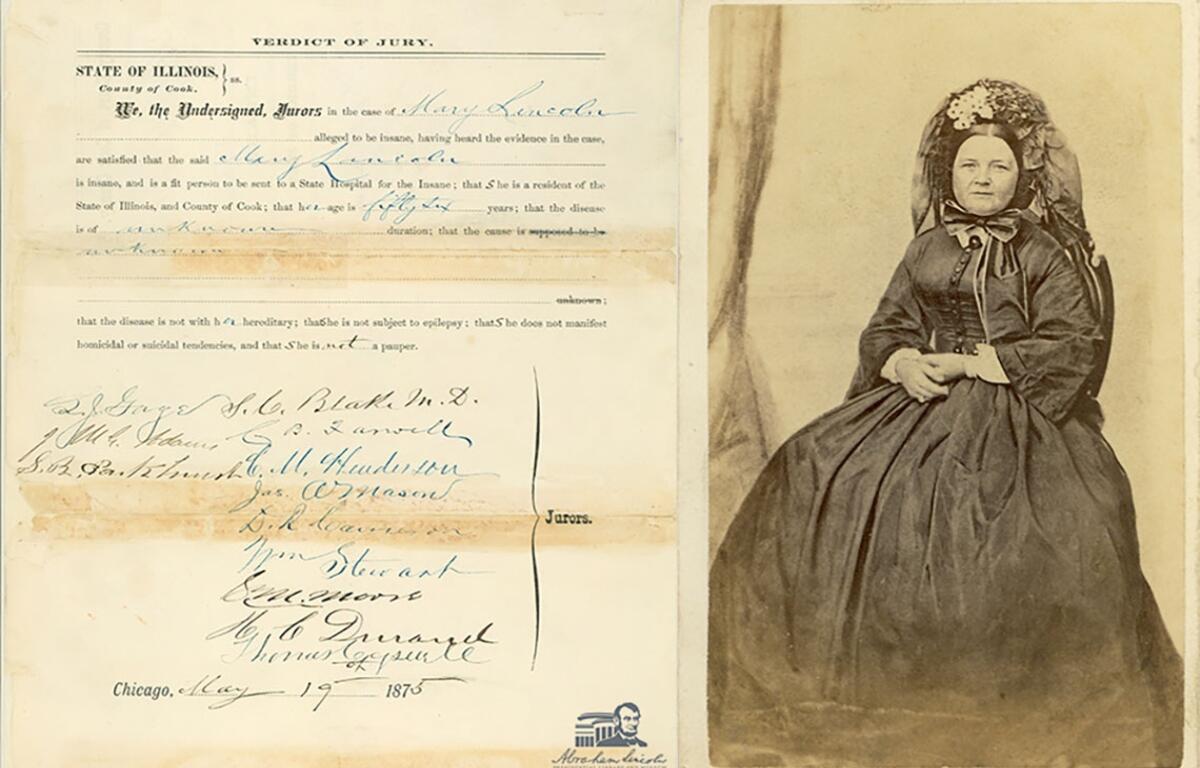 VERDICT OF JURY.
STATE OF ILLINOIS, } ss.
County of Cook.
We, the Undersigned, Jurors in the case of Mary Lincoln
alleged to be insane, having heard the evidence in the case,
are satisfied that the said Mary Lincoln
is insane, and is a fit person to be sent to a State Hospital for the Insane; that She is a resident of the
State of Illinois, and County of Cook; that her age is fifty six years; that the disease
is of unknown duration; that the cause is supposed to be
unknown
unknown;
that the disease is not with her hereditary; that She is not subject to epilepsy; that She does not manifest
homicidal or suicidal tendencies, and that She is not a pauper.
L. J. Gage S. C. Blake M. D.
J McG. Adams C B. Farwell
S. B. Parkhurst C. M. Henderson
Jas. A Mason
D. R Cameron
Jurors.
Wm Stewart
S. M. Moore
H. C Durand
Thomas Cogswell
Chicago, May 19 1875
Abraham Lincoln